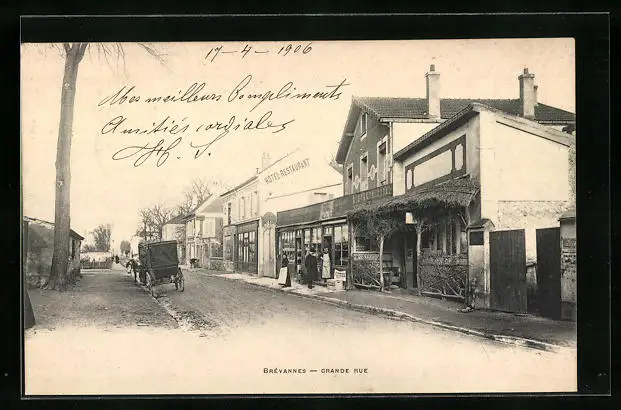 17-4-1906
Mes meilleurs Compliments
Amitiés cordiales
HÔTEL-RESTAURANT
BRÉVANNES — GRANDE RUE